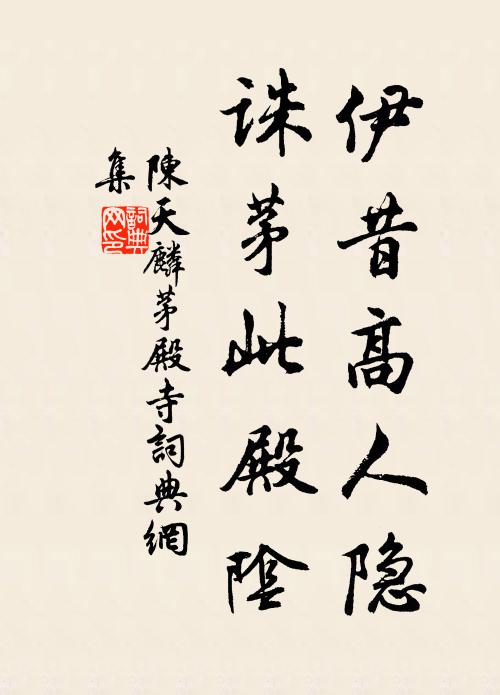 伊昔高人隐
诛茅此殿陰
陳天麟茅殿寺詞典網
集
詞典网印